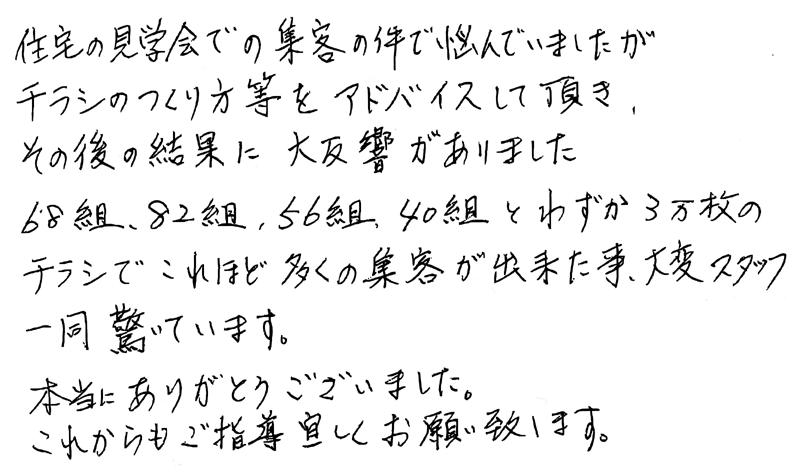 住宅の見学会での集客の件で悩んでいましたが
チラシのつくり方等をアドバイスして頂き、
その後の結果に大反響がありました
68組、82組、56組、40組とわずか3万枚の
チラシでこれほど多くの集客が出来た事、大変スタッフ
一同驚いています。
本当にありがとうございました。
これからもご指導宜しくお願い致します。